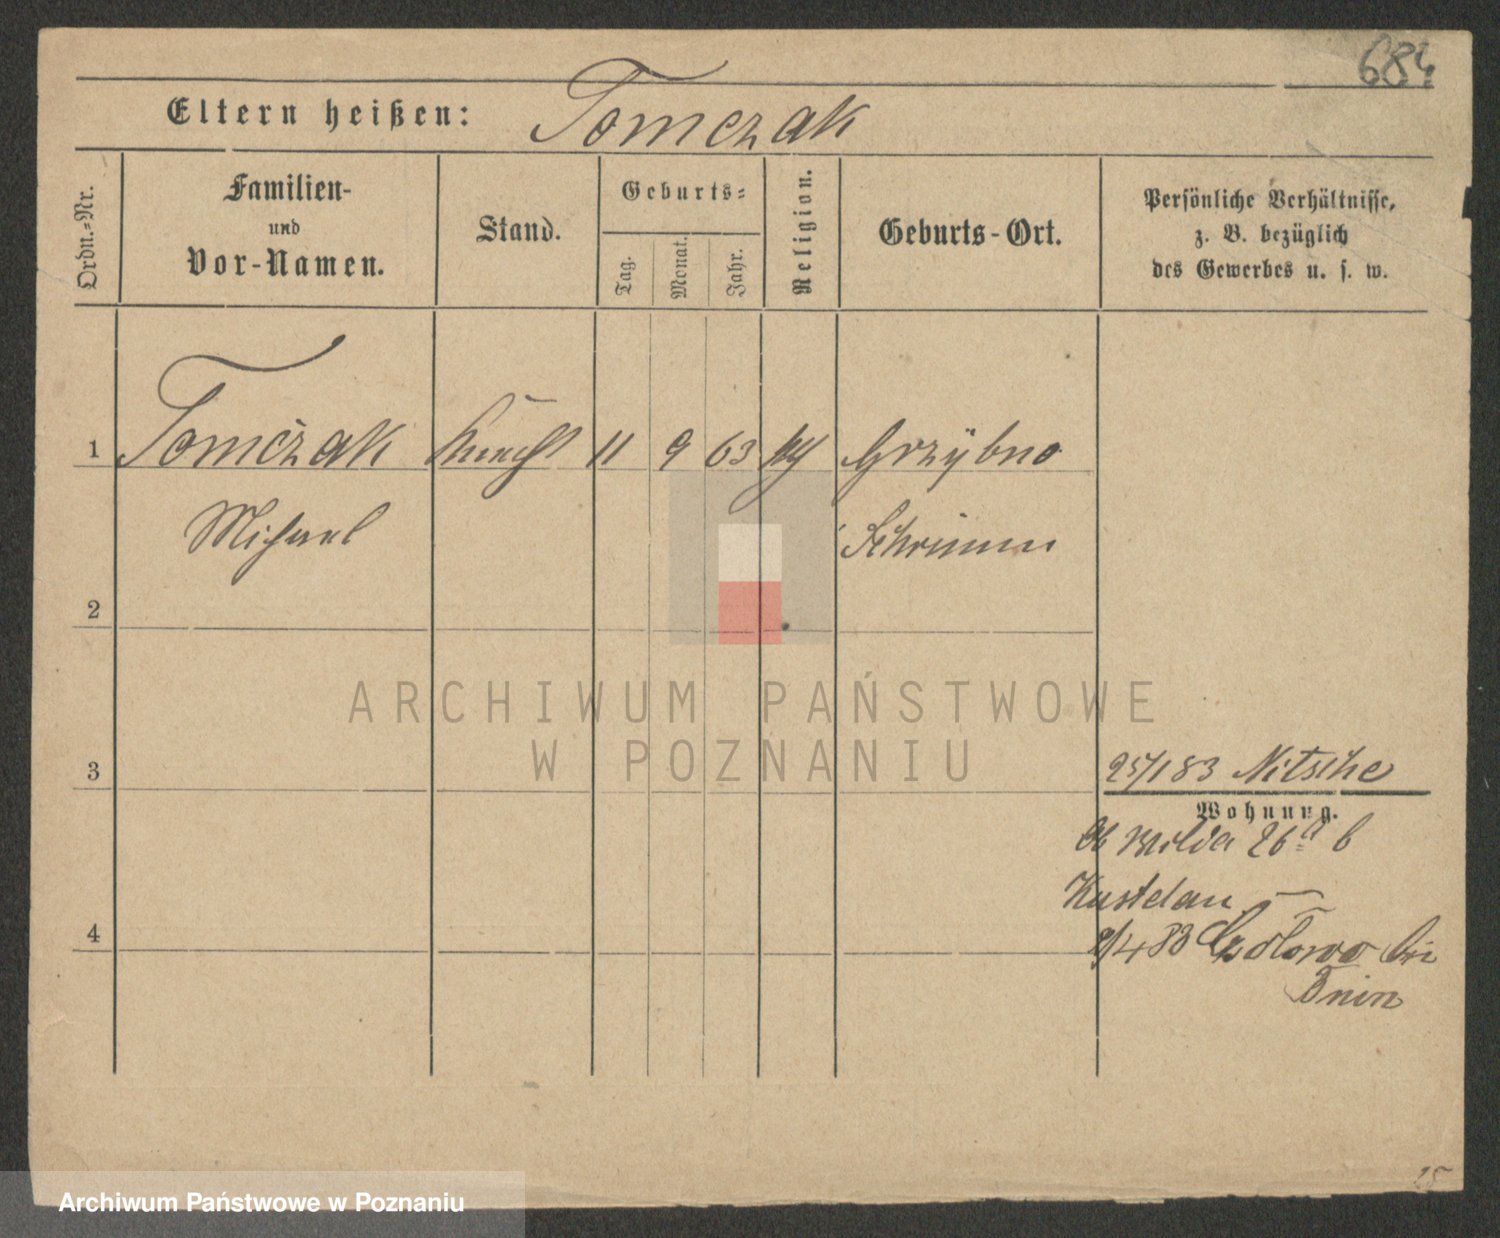 684
Eltern heißen: Tomczak
Ordn.-Nr.
Familien-
und
Vor-Namen.
Stand.
Geburts=
Tag.
Monat.
Jahr.
Religion.
Geburts-Ort.
Persönliche Verhältnisse,
z. B. bezüglich
des Gewerbes u. s. w.
1 Tomczak Knecht 11 9 63 Grzybno
Michael Schrimm
2
ARCHIWUM PAŃSTWOWE
W POZNANIU
3
25/1 83 Nitsche
Wohnung.
Wilda 26 b
4
2/4 83 bei
Bnin
15
Archiwum Państwowe w Poznaniu